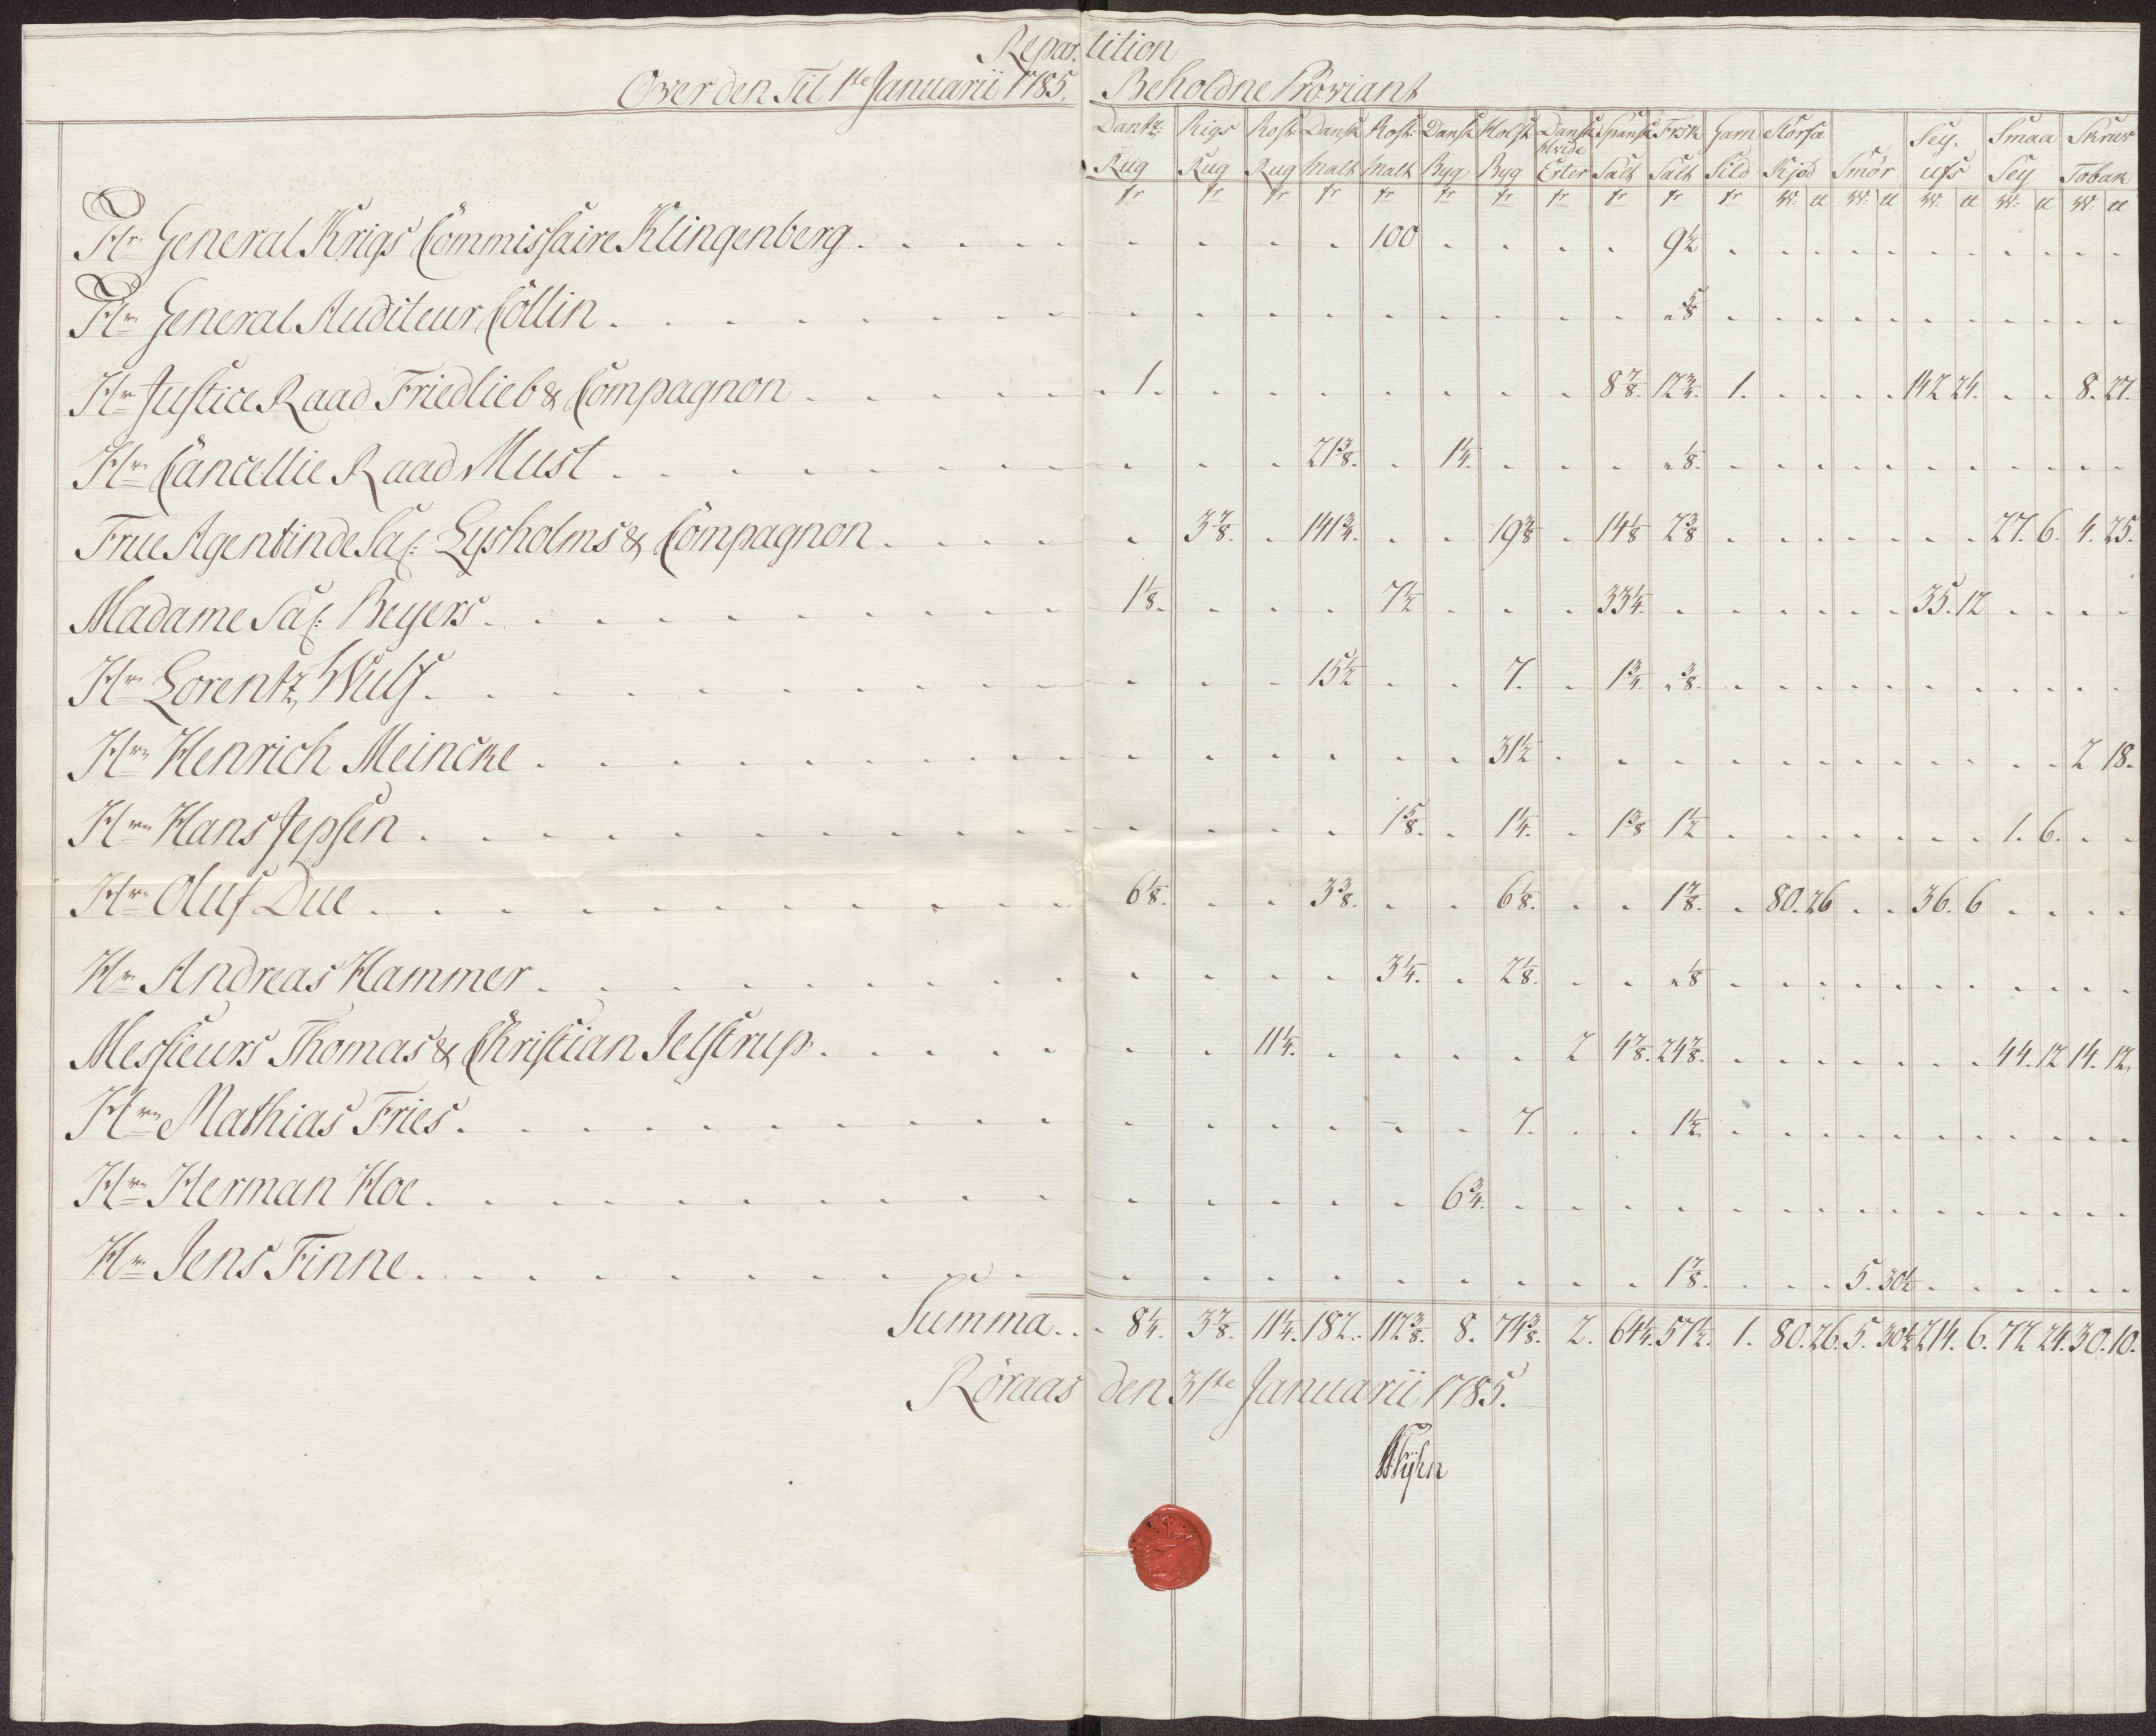 Repartition
Over den Til 1ste Januarii 1785. Beholdne Proviant
Dantz: Rug tr | Rigs Rug tr | Rost: Rug tr | Dansk Malt tr | Rost: Malt tr | Dansk Byg tr | Holst: Byg tr | Dansk Hvide Erter tr | Spansk Salt tr | Frsk Salt tr | Garn Sild tr | Storsa Kjød W: u | Smør W: u | Sey ufs W: u | Smaa Sey W: u | Skruv Tobak W: u
Hr General Krigs Commissaire Klingenberg . . . . . 100 . . . . 9 1/2 . . . . . . . . . . .
Hr General Auditeur Collin . . . . . . . . . „ 5/8 . . . . . . . . . . .
Hr Justice Raad Friedlieb & Compagnon . . . 1. . . . . . . . 8 7/8. 12 3/4. 1. . . . . 142 24. . . 8. 27.
Hr Cancellie Raad Must . . . . 21 3/8. . 1 1/4. . . . „ 1/8. . . . . . . . . . . .
Frue Agentinde Sal: Lysholms & Compagnon . . . 3 7/8. . 141 3/4. . . 19 3/8 . 14 1/8 2 3/8 . . . . . . . 27. 6. 4. 25.
Madame Sal: Beyers . . . 1 1/8. . . . 7 1/2 . . . 33 1/4. . . . . . . 35. 12 . . . .
Hr Lorentz Wulf . . . . 15 1/2 . . 7. . 1 3/4. „ 3/8. . . . . . . . . . . .
Hrn Henrich Meincke . . . . . . . 31 1/2 . . . . . . . . . . . . 2 18.
Hrn Hans Jepsen . . . . . 1 5/8. . 1 1/4. . 1 3/8 1 1/2 . . . . . . . 1. 6. . .
Hrn Oluf Due . . . 6 1/8. . . 3 3/8. . . 6 1/8. . . 1 7/8. . 80. 26 . . 36. 6 . . . .
Hr Andreas Hammer . . . . . 3 1/4. . 2 1/8. . . „ 1/8 . . . . . . . . . . .
Messieurs Thomas & Christian Jelstrup . . . . 11 1/4. . . . . 2 4 7/8. 24 7/8. . . . . . . . 44. 12 14. 12.
Hrn Mathias Fries . . . . . . . 7. . . 1 1/2. . . . . . . . . . . .
Hrn Herman Hoe . . . . . . 6 3/4. . . . . . . . . . . . . . . .
Hrn Jens Finne . . . . . . . . . . 1 7/8. . . . 5. 30 1/2 . . . . . .
Summa . . . 8 1/4. 3 7/8. 11 1/4. 182. 112 3/8. 8. 74 3/8. 2. 64 1/4. 57 1/2. 1. 80. 26. 5. 30 1/2 214. 6. 72 24. 30. 10.
Røraas den 31te Januarii 1785.